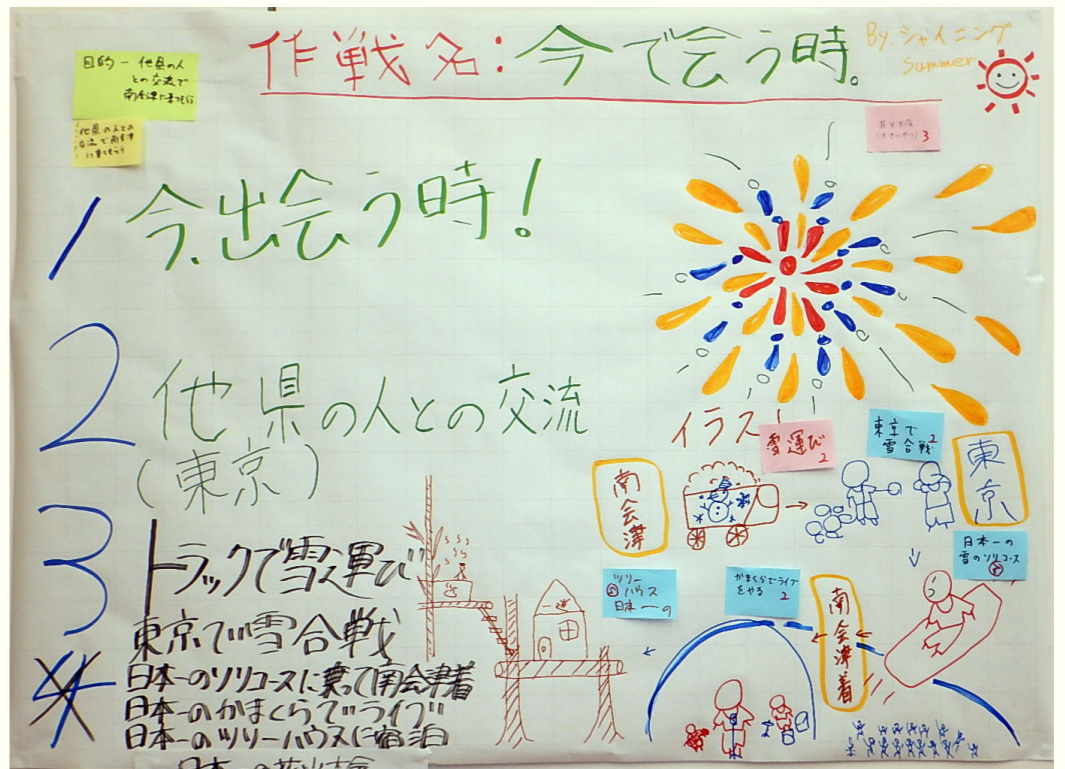 作戦名:今で会う時。
By シャイニング
Summer
目的ー他県の人
との交流で
南会津に来てもらう
他県の人との
交流で南会津
に来てもらう
3
1 今、出会う時!
2 他県の人との交流
(東京)
3 トラックで雪運び
東京で雪合戦
日本一のソリコースに乗って南会津着
4 日本一のかまくらでライブ
日本一のツリーハウスに宿泊
イラスト
雪運び
2
東京で
雪合戦
2
南会津
東京
日本一の
雪のソリコース
ツリー
ハウス
日本一の
5
かまくらでライブ
をやる
2
南会津着